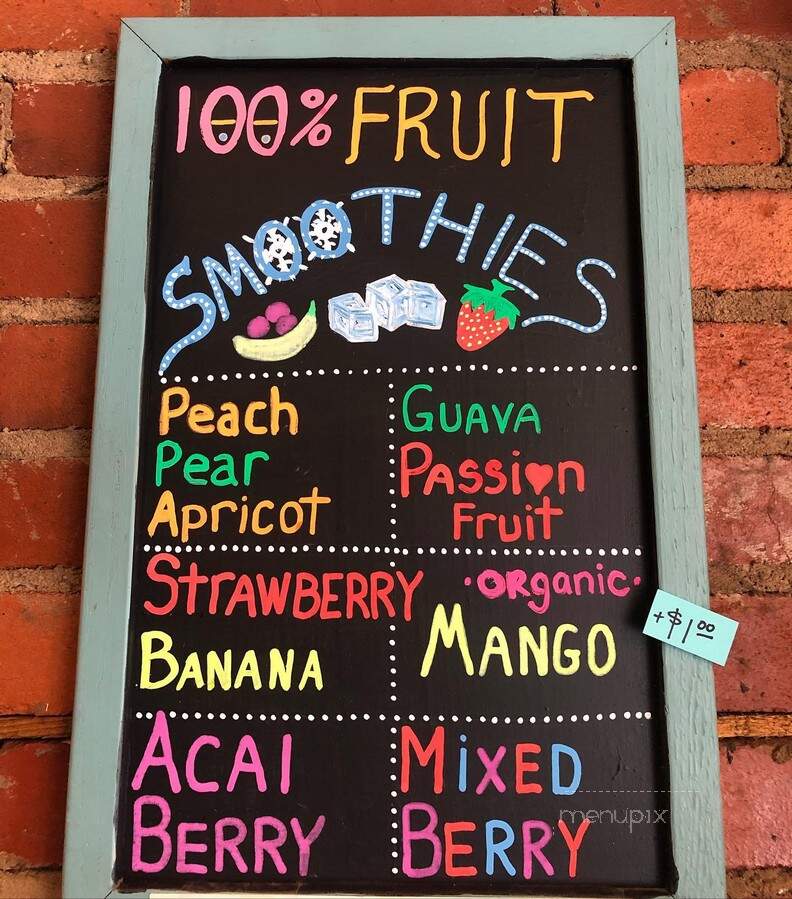 100% FRUIT
SMOOTHIES
Peach
Pear
Apricot
GUAVA
PASSION
FRUIT
STRAWBERRY
BANANA
·ORganic·
MANGO
+$1.00
ACAI
BERRY
MiXED
BERRY
menupix